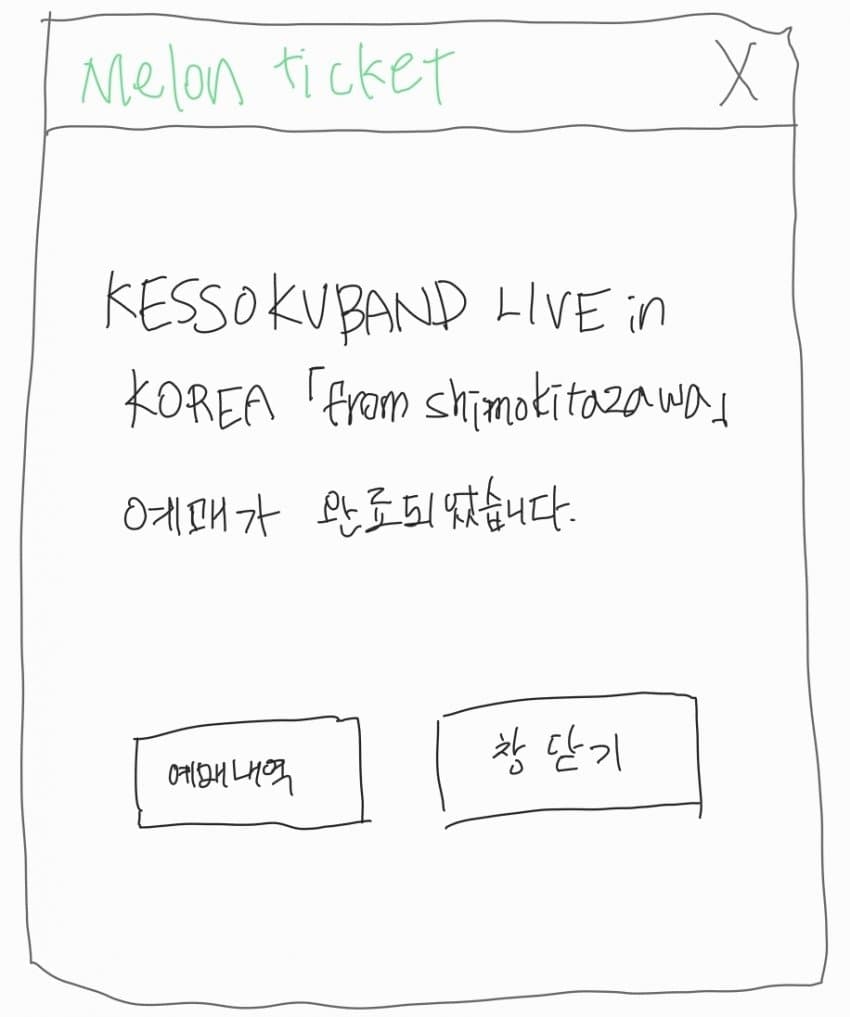 Melon ticket X
KESSOKUBAND LIVE in
KOREA 「from shimokitazawa」
예매가 완료되었습니다.
예매내역
창 닫기